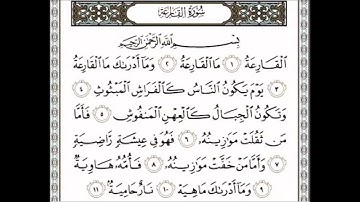 سُورَةُ القَارِعَةِ
بِسْمِ اللَّهِ الرَّحْمَٰنِ الرَّحِيمِ
الْقَارِعَةُ ١ مَا الْقَارِعَةُ ٢ وَمَا أَدْرَاكَ مَا الْقَارِعَةُ
٣ يَوْمَ يَكُونُ النَّاسُ كَالْفَرَاشِ الْمَبْثُوثِ ٤
وَتَكُونُ الْجِبَالُ كَالْعِهْنِ الْمَنفُوشِ ٥ فَأَمَّا
مَن ثَقُلَتْ مَوَازِينُهُ ٦ فَهُوَ فِي عِيشَةٍ رَّاضِيَةٍ
٧ وَأَمَّا مَنْ خَفَّتْ مَوَازِينُهُ ٨ فَأُمُّهُ هَاوِيَةٌ
٩ وَمَا أَدْرَاكَ مَا هِيَهْ ١٠ نَارٌ حَامِيَةٌ ١١